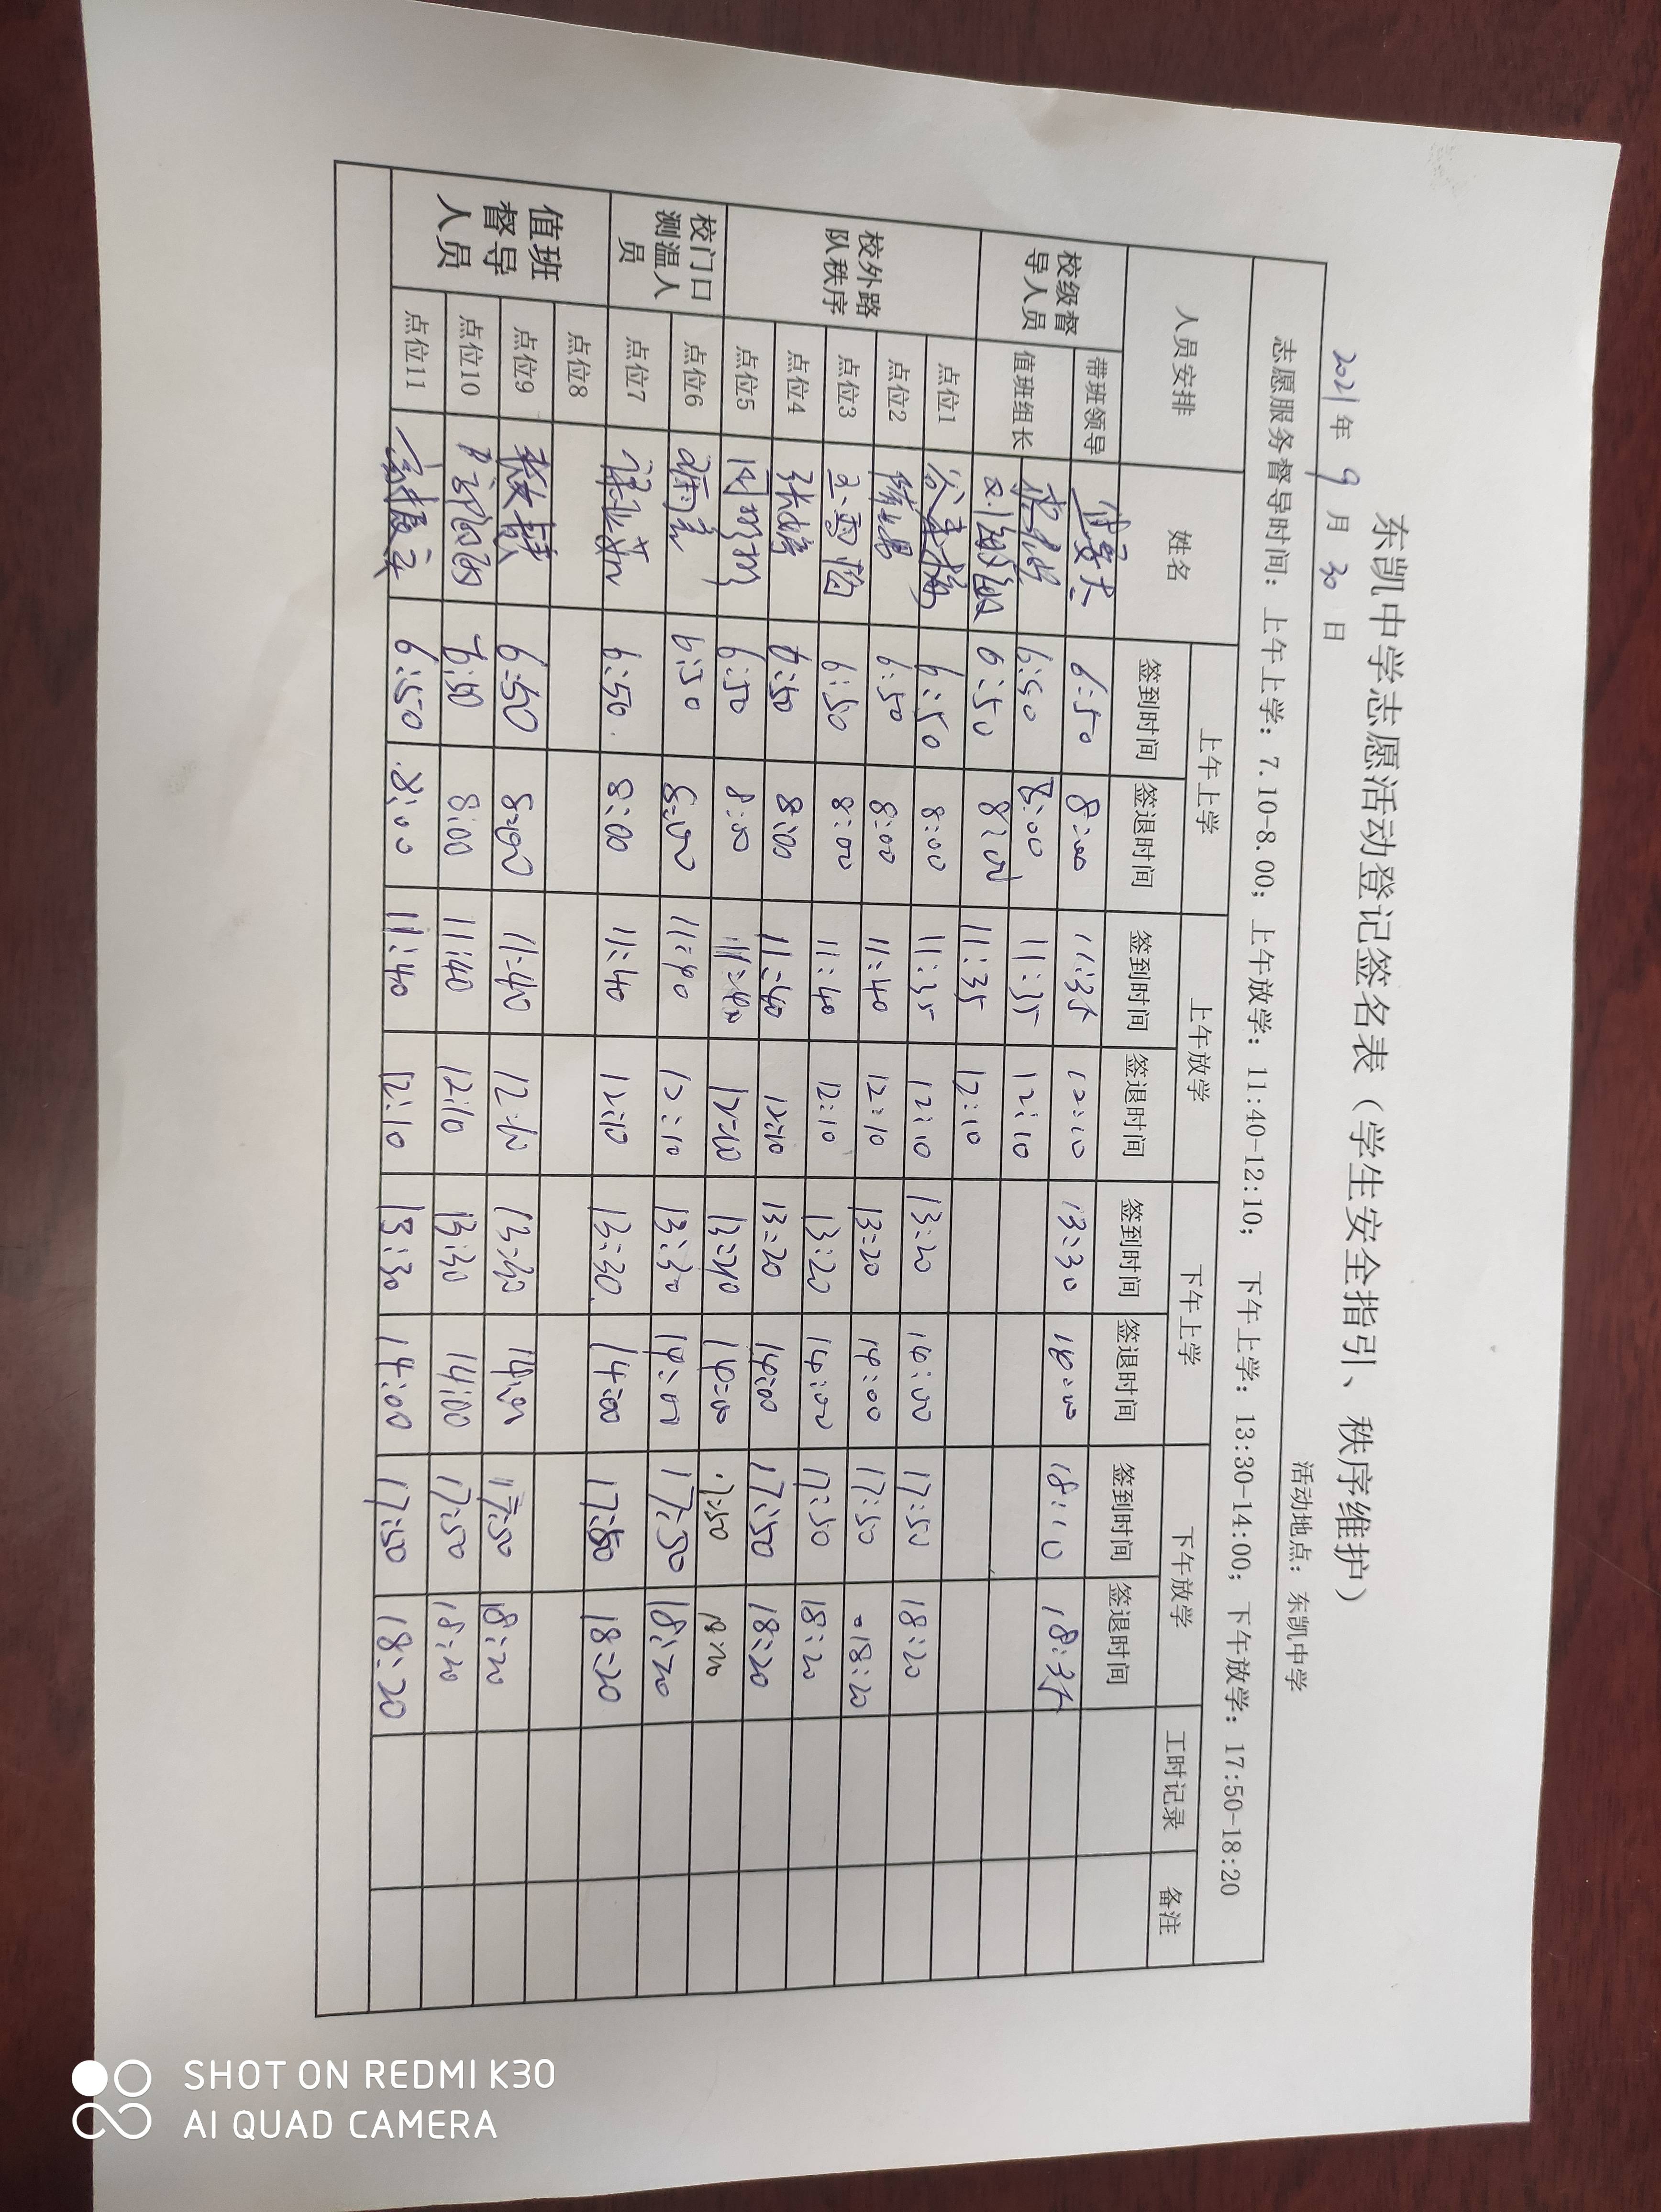 东凯中学志愿活动登记签名表（学生安全指引、秩序维护）
2021年 9 月 30 日 活动地点：东凯中学
志愿服务督导时间：上午上学：7.10-8.00；上午放学：11:40-12:10； 下午上学：13:30-14:00；下午放学：17:50-18:20
人员安排 姓名 上午上学 上午放学 下午上学 下午放学 工时记录 备注
签到时间 签退时间 签到时间 签退时间 签到时间 签退时间 签到时间 签退时间
校级督导人员 带班领导 6:50 8:00 11:35 12:10 13:30 14:00 18:10 18:35
值班组长 6:50 8:00 11:35 12:10
6:50 8:00 11:35 12:10
校外路队秩序 点位1 6:50 8:00 11:35 12:10 13:20 14:00 17:50 18:20
点位2 6:50 8:00 11:40 12:10 13:20 14:00 17:50 18:20
点位3 王雪怡 6:50 8:00 11:40 12:10 13:20 14:00 17:50 18:20
点位4 张婷 6:50 8:00 11:40 12:10 13:20 14:00 17:50 18:20
点位5 6:50 8:00 11:40 12:10 13:20 14:00 17:50 18:20
校门口测温人员 点位6 6:50 8:00 11:40 12:10 13:30 14:00 17:50 18:20
点位7 6:50 8:00 11:40 12:10 13:30 14:00 17:50 18:20
值班督导人员 点位8
点位9 6:50 8:00 11:40 12:10 13:30 14:00 17:50 18:20
点位10 6:50 8:00 11:40 12:10 13:30 14:00 17:50 18:20
点位11 6:50 8:00 11:40 12:10 13:30 14:00 17:50 18:20
SHOT ON REDMI K30
AI QUAD CAMERA